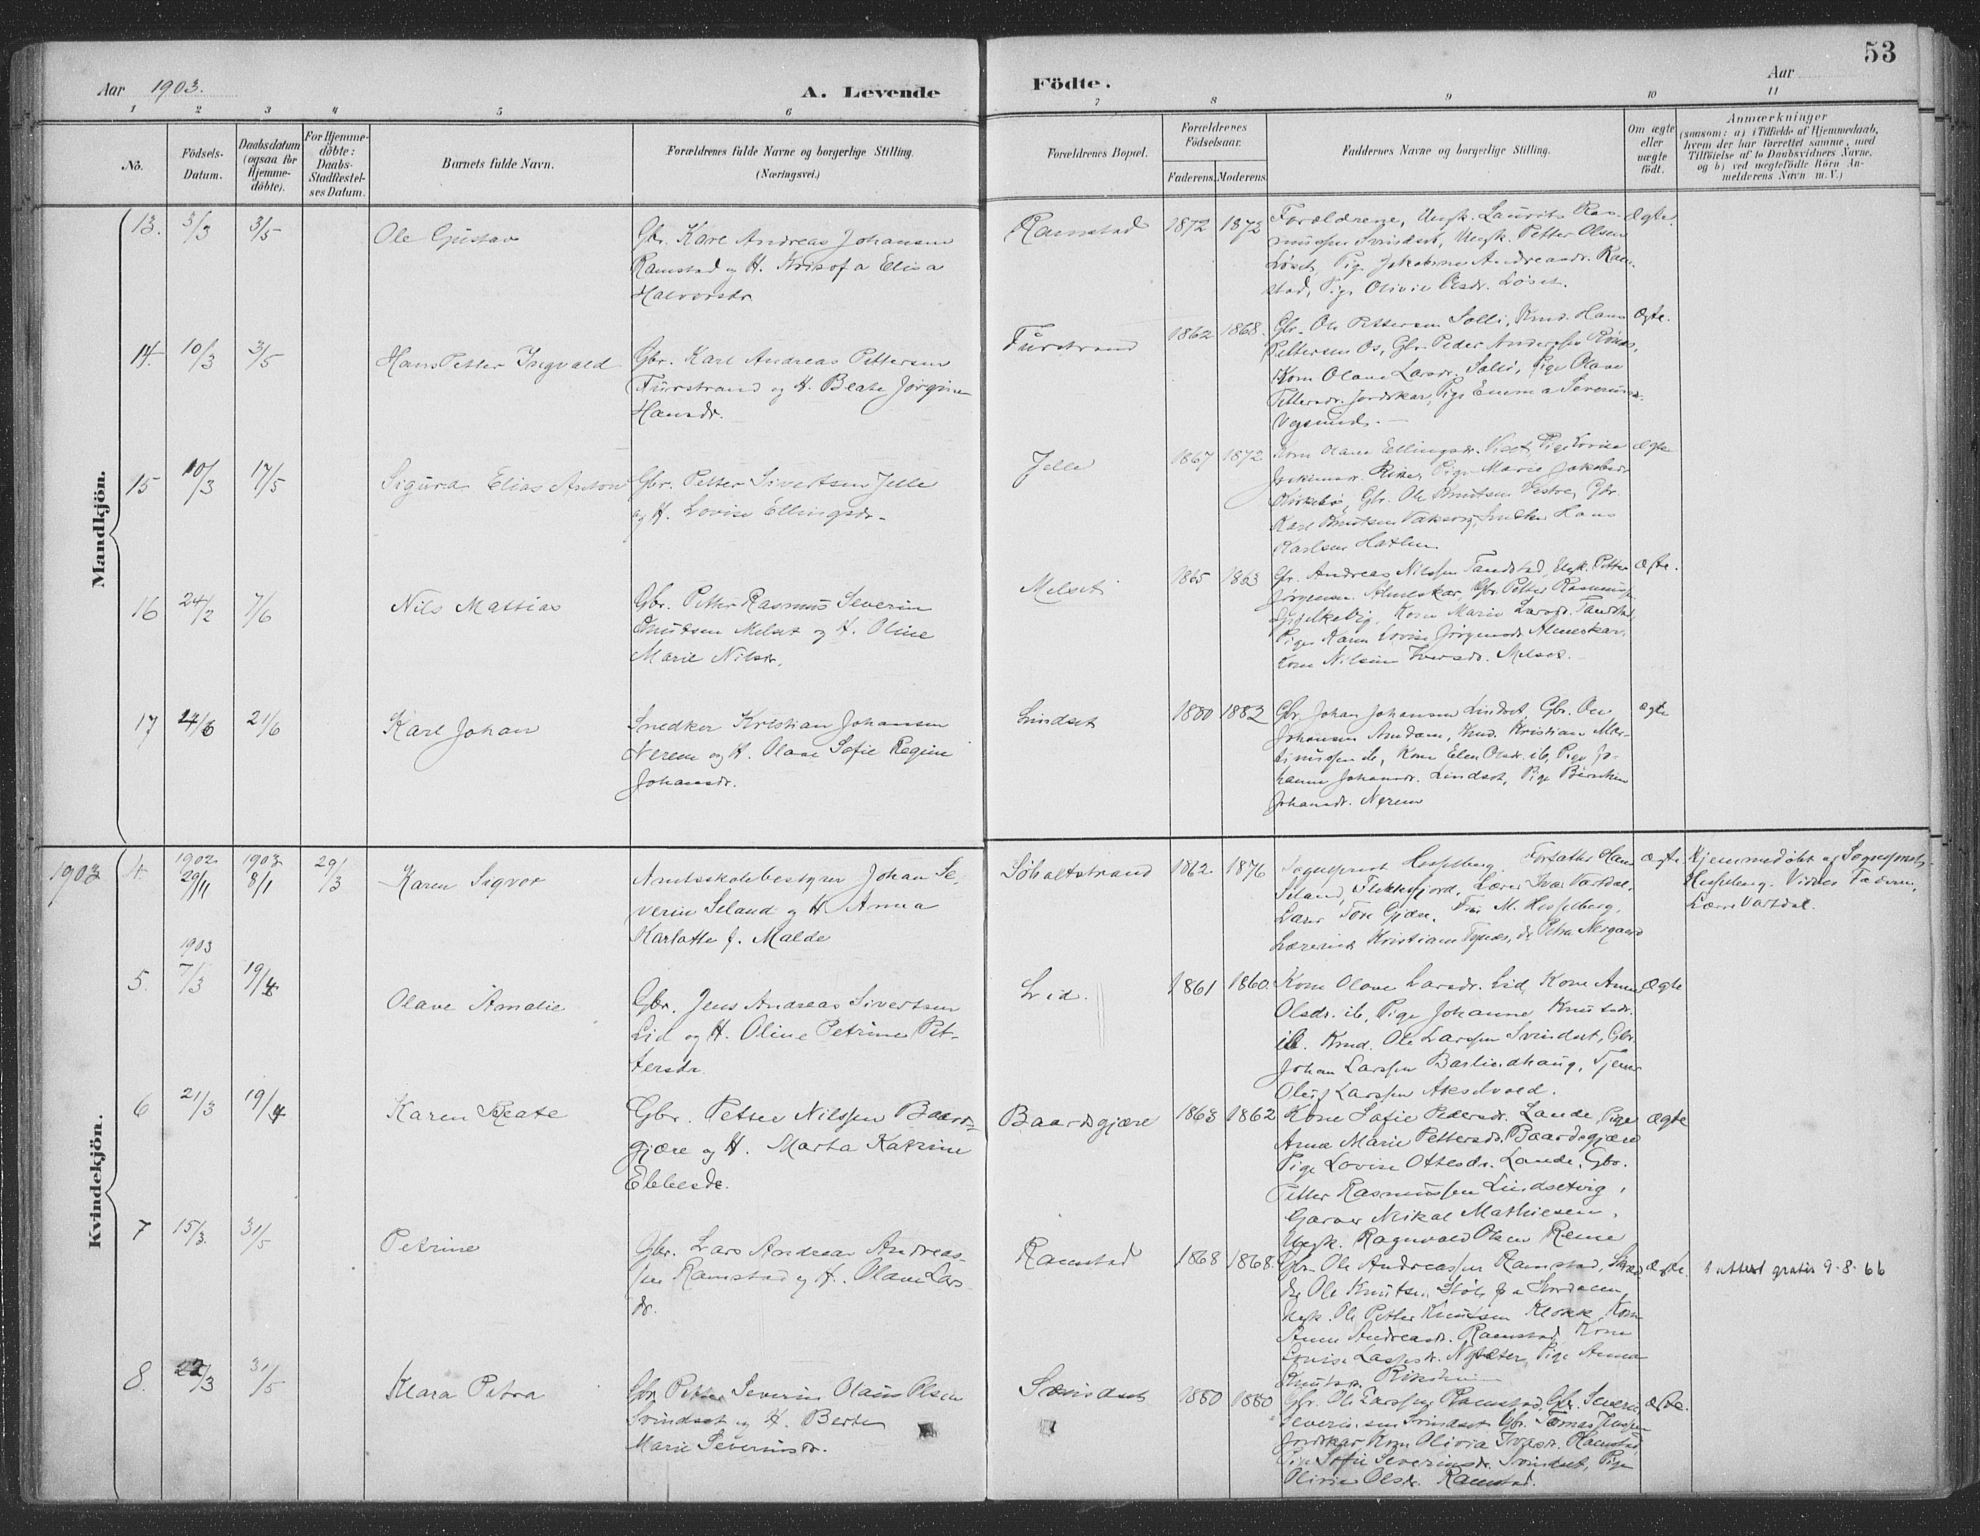 53
Aar 1903.
A. Levende
Födte.
Aar
1 2 3 4 5 6 7 8 9 10 11
No.
Födsels-
Datum.
Daabsdatum
(ogsaa for
Hjemme-
döbte).
For Hjemme-
döbte:
Daabs-
Stadfæstel-
ses Datum.
Barnets fulde Navn.
Forældrenes fulde Navne og borgerlige Stilling.
(Næringsvei.)
Forældrenes Bopæl.
Forældrenes
Födselsaar.
Faderens. Moderens.
Faddernes Navne og borgerlige Stilling.
Om ægte
eller
uægte
födt.
Anmærkninger
(saasom: a) i Tilfælde af Hjemmedaab,
hvem der har forrettet samme, med
Tilföielse af to Daabsvidners Navne,
og b) ved uægtefödte Börn An-
melderens Navn m. V.)
Mandkjön.
13. 5/3 3/5
Ole Gustav
Gbr. Karl Andreas Johansen
Ramstad og H. Krisofa Elisa
Halvorsdr.
Ramstad
1872 1873
Forældrene, Ungk. Laurits Ras-
mussen Svindset, Ungk. Petter Olsen
Løset, Pige Jakobine Andreasdr. Ram-
stad, Pige Olivie Olsdr. Løset.
Ægte.
14. 10/3 3/5
Hans Petter Ingvald
Gbr. Karl Andreas Pettersen
Furstrand og H. Beate Jørgine
Hansdr.
Furstrand
1862 1868.
Gbr. Ole Pettersen Solli, Kmd. Hans
Pettersen Os, Gbr. Peder Anderssen
Kone Olane Larsdr. Solli, Pige Olave
Pettersdr. Jordskar, Pige Emma Severinsdr.
Vegsund.
Ægte.
15 10/3 17/5
Sigurd Elias Anton
Gbr. Petter Sivertsen Jelle
og H. Lovise Ellingsdr.
Jelle
1867 1872
Kone Olane Ellingsdr. Pige Lovise
Pige Marie Jakobsdr.
Gbr. Ole Knutsen Vestre, Gbr.
Karl Knutsen Snedker Hans
Karlsen Hatlen
Ægte
16 24/2 7/6
Nils Mattias
Gbr. Petter Rasmus Severin
Knutsen Melset og H. Oline
Marie Nilsdr.
Melset
1865 1863
Gbr. Andreas Nilssen Tandstad, Ungk. Petter
Jørgensen Almeskar, Gbr. Petter Rasmussen
Kone Marie Larsdr. Tandstad,
Pige Karen Lovise Jørgensdr. Almeskar.
Kone Nilsine Iversdr. Melset.
Ægte.
17 14/6 21/6
Karl Johan
Snedker Kristian Johansen
Nerem og H. Olave Sofie Regine
Johansdr.
Lindset
1880 1882
Gbr. Johan Johansen Lindset, Gbr. Ole
Johansen Amdam, Kmd. Kristian Mar-
tinussen ib, Kone Elen Olsdr. ib, Pige Jo-
hanne Johansdr. Lindset, Pige
Johansdr. Nerem
ægte
Kvindekjön.
1903
4. 1902 29/11 1903 8/1 29/3
Karen Sigvor
Amtsskolebestyrer Johan Se-
verin Seland og H. Anna
Karlotte f. Malde
Søholtstrand
1862. 1876
Sogneprest Hesselberg, Forfatter Hans
Seland, Flekkefjord, Lærer Ivar Vartdal,
Lærer Tore Gjære, Fru M. Hesselberg,
Lærerinde Kristiane do Petra Nergaard
ægte
Hjemmedøbt af Sogneprest
Hesselberg. Vidner Faderen,
Lærer Vartdal.
5. 1903 7/3 19/4
Olave Amalie
Gbr. Jens Andreas Sivertsen
Lid og H. Oline Petrine Pet-
tersdr.
Lid.
1861 1860.
Kone Olave Larsdr. Lid, Kone Anne
Olsdr. ib, Pige Johanne Knutsdr.
ib. Kmd. Ole Larssen Svindset, Gbr.
Johan Larssen Barlindhaug, Tjener
Oluf Larssen Akselvold.
Ægte
6 21/3 19/4
Karen Beate
Gbr. Petter Nilssen Baards-
gjære og H. Marta Katrine
Ebbesdr.
Baardsgjære
1863 1862
Kone Sofie Pedersdr. Lande, Pige
Anne Marie Pettersdr. Baardsgjære
Pige Lovise Ottesdr. Lande, Gbr.
Petter Rasmussen Lindsetvig,
Garver Mikal Mathiesen,
Ungk. Ragnvald Olsen Reme
ægte
7 15/3 31/5
Petrine
Gbr. Lars Andreas Andreas-
sen Ramstad og H. Olave Lars-
dr.
Ramstad
1868 1868.
Gbr. Ole Andreassen Ramstad,
Ole Knutsen
Ungk. Ole Petter Knutsen Klokk, Kone
Anne Andreasdr. Ramstad, Kone
Lovise Larsdr. Pige Anna
Knutsdr.
ægte.
1 attest gratis 9-8-66
8. 22/3 31/5
Klara Petra
Gbr Petter Severin Olaus Olsen
Svindset og H. Berte
Marie Severinsdr.
Svindset
1880 1880
Gbr. Ole Larssen Ramstad, Gbr. Severin
Severinsen Svindset, Gbr. Tomas Jenssen
Jordskar, Kone Olivia Ramstad,
Pige Sofie Severinsdr. Svindset, Pige
Olivie Olsdr. Ramstad.
ægte.